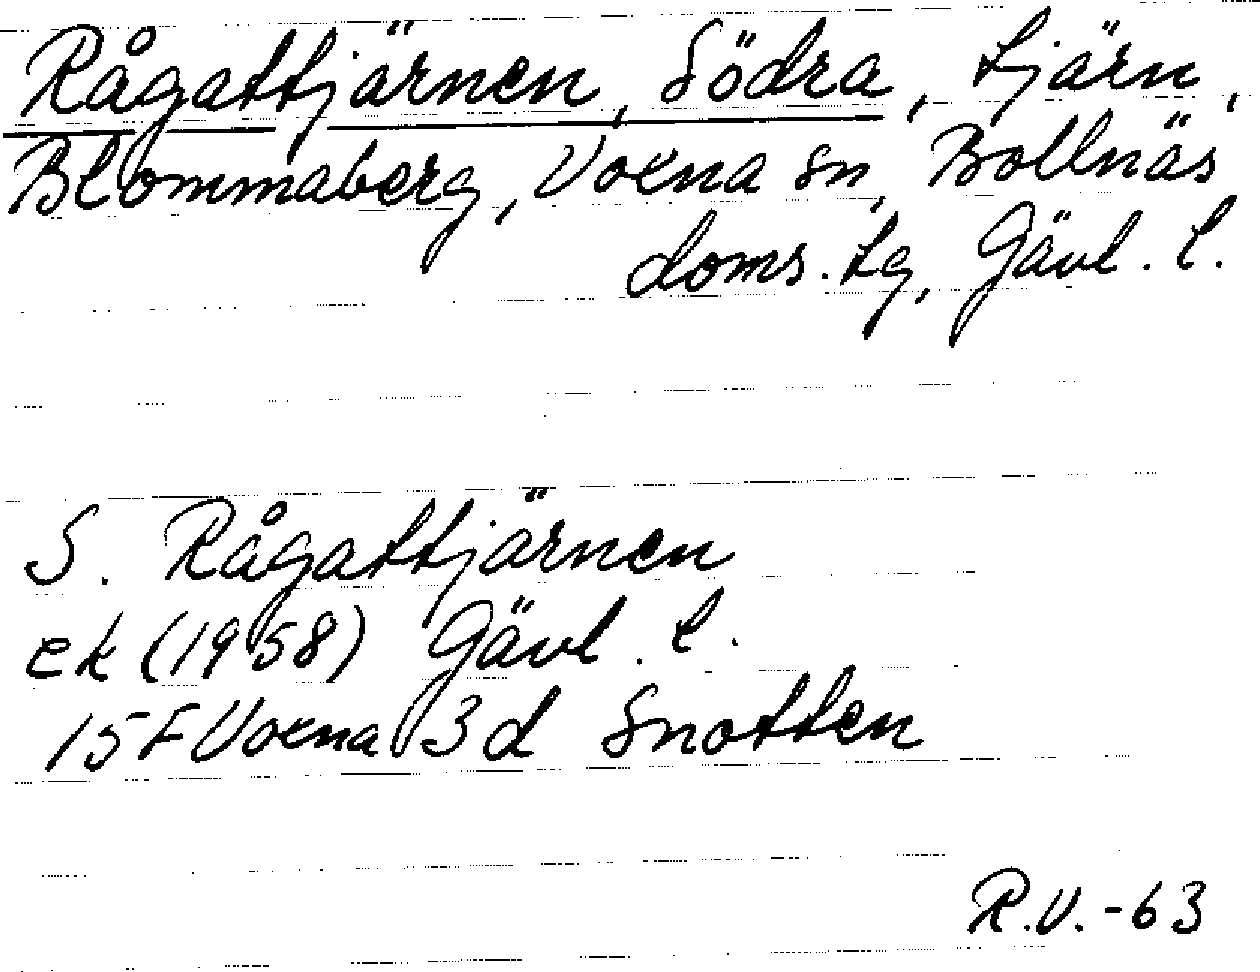 Rågattjärnen, Södra, tjärn,
Blommaberg, Voxna sn, Bollnäs
doms.tg, Gävl. l.
S. Rågattjärnen
ek (1958) Gävl. l.
15F Voxna 3d Snotten
R.V.-63